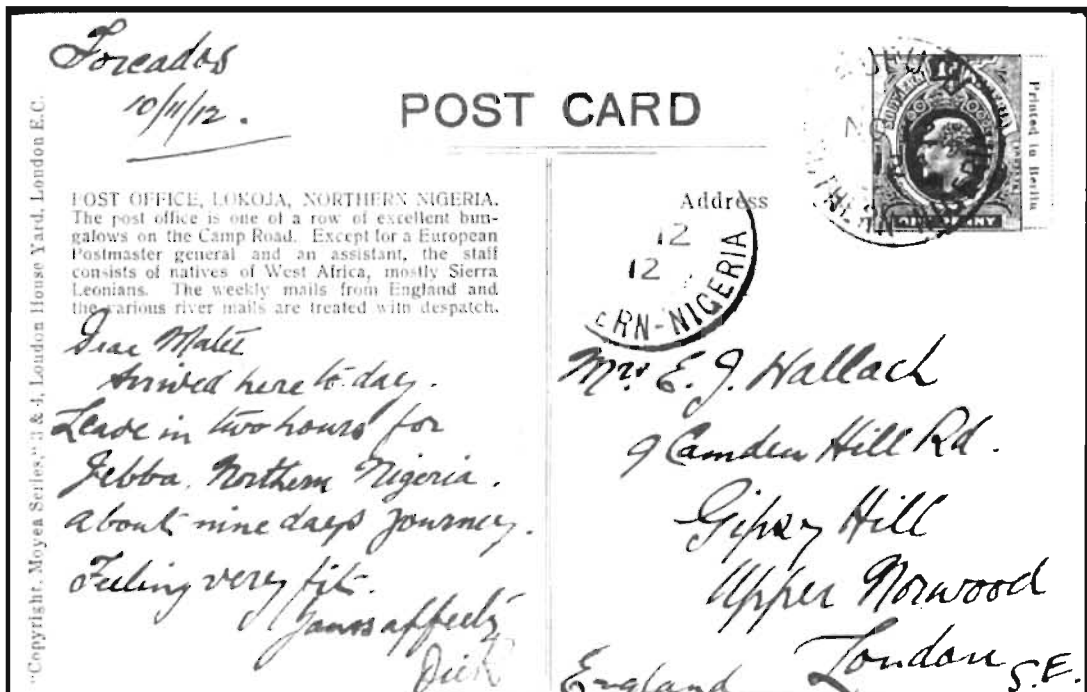 Forcados
10/11/12.
POST CARD
"Copyright, Moyea Series," 3 & 4, London House Yard, London E.C.
POST OFFICE, LOKOJA, NORTHERN NIGERIA.
The post office is one of a row of excellent bun-
galows on the Camp Road. Except for a European
Postmaster general and an assistant, the staff
consists of natives of West Africa, mostly Sierra
Leonians. The weekly mails from England and
the various river mails are treated with despatch.
Dear
Arrived here to day.
Leave in two hours for
Jebba. Northern Nigeria.
about nine days journey.
Feeling very fit.
Yours affectly
Dick
Address
12
12
ERN-NIGERIA
Printed in Berlin
Mrs E. J. Wallach
9 Camden Hill Rd.
Gipsy Hill
Upper Norwood
London S.E.
England